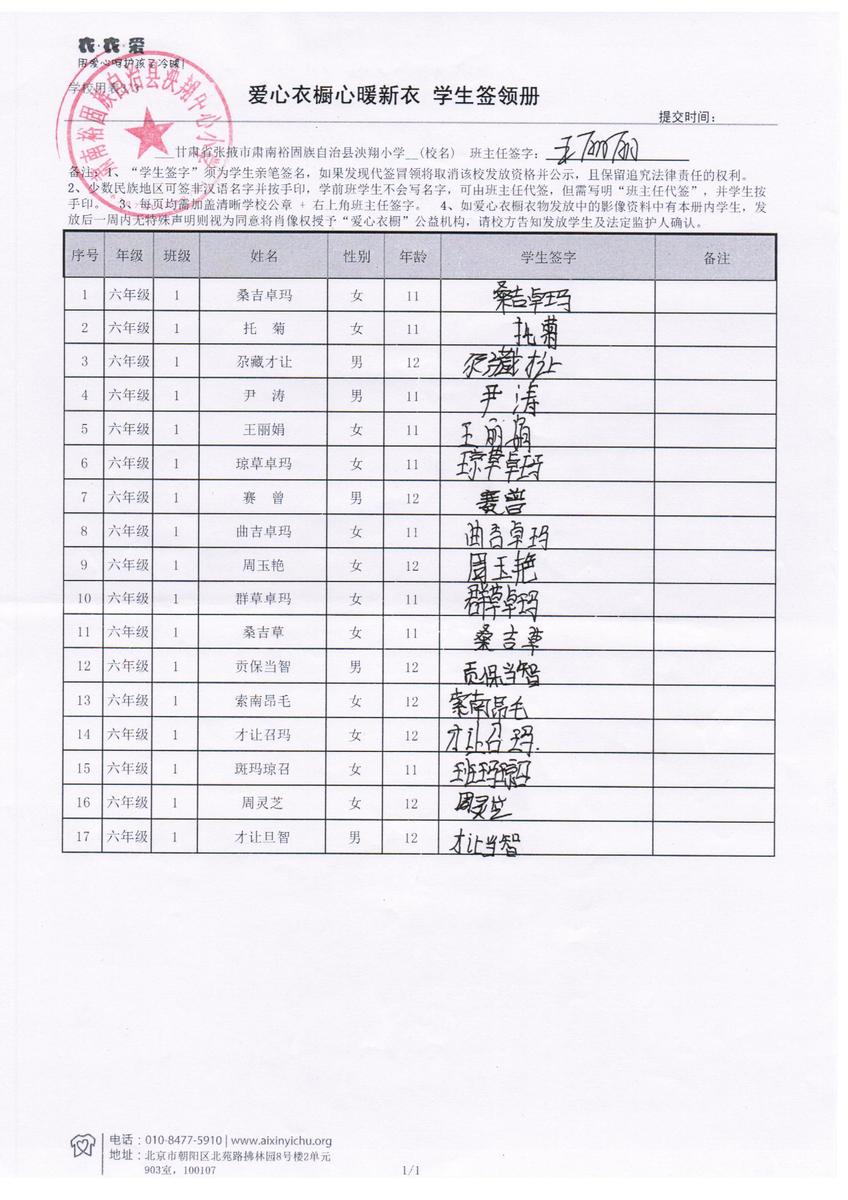 衣·衣·爱
用爱心呵护孩子冷暖!
学校用表3
肃南裕固族自治县泱翔中心小学
爱心衣橱心暖新衣 学生签领册
提交时间:
甘肃省张掖市肃南裕固族自治县泱翔小学__(校名) 班主任签字: 王丽丽
备注: 1、“学生签字”须为学生亲笔签名, 如果发现代签冒领将取消该校发放资格并公示, 且保留追究法律责任的权利。
2、少数民族地区可签非汉语名字并按手印, 学前班学生不会写名字, 可由班主任代签, 但需写明“班主任代签”, 并学生按
手印。 3、每页均需加盖清晰学校公章 + 右上角班主任签字。 4、如爱心衣橱衣物发放中的影像资料中有本册内学生, 发
放后一周内无特殊声明则视为同意将肖像权授予“爱心衣橱”公益机构, 请校方告知发放学生及法定监护人确认。
序号 年级 班级 姓名 性别 年龄 学生签字 备注
1 六年级 1 桑吉卓玛 女 11 桑吉卓玛
2 六年级 1 托 菊 女 11 托菊
3 六年级 1 尕藏才让 男 12 尕藏才让
4 六年级 1 尹 涛 男 11 尹涛
5 六年级 1 王丽娟 女 11 王丽娟
6 六年级 1 琼草卓玛 女 11 琼草卓玛
7 六年级 1 赛 曾 男 12 赛曾
8 六年级 1 曲吉卓玛 女 11 曲吉卓玛
9 六年级 1 周玉艳 女 12 周玉艳
10 六年级 1 群草卓玛 女 11 群草卓玛
11 六年级 1 桑吉草 女 11 桑吉草
12 六年级 1 贡保当智 男 12 贡保当智
13 六年级 1 索南昂毛 女 12 索南昂毛
14 六年级 1 才让召玛 女 12 才让召玛.
15 六年级 1 斑玛琼召 女 11 班玛琼召
16 六年级 1 周灵芝 女 12 周灵芝
17 六年级 1 才让旦智 男 12 才让当智
电话: 010-8477-5910 | www.aixinyichu.org
地址: 北京市朝阳区北苑路拂林园8号楼2单元
903室, 100107
1/1